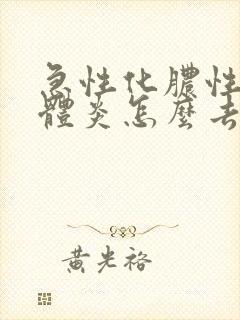 急性化膿性
體炎怎麼去
黃光裕